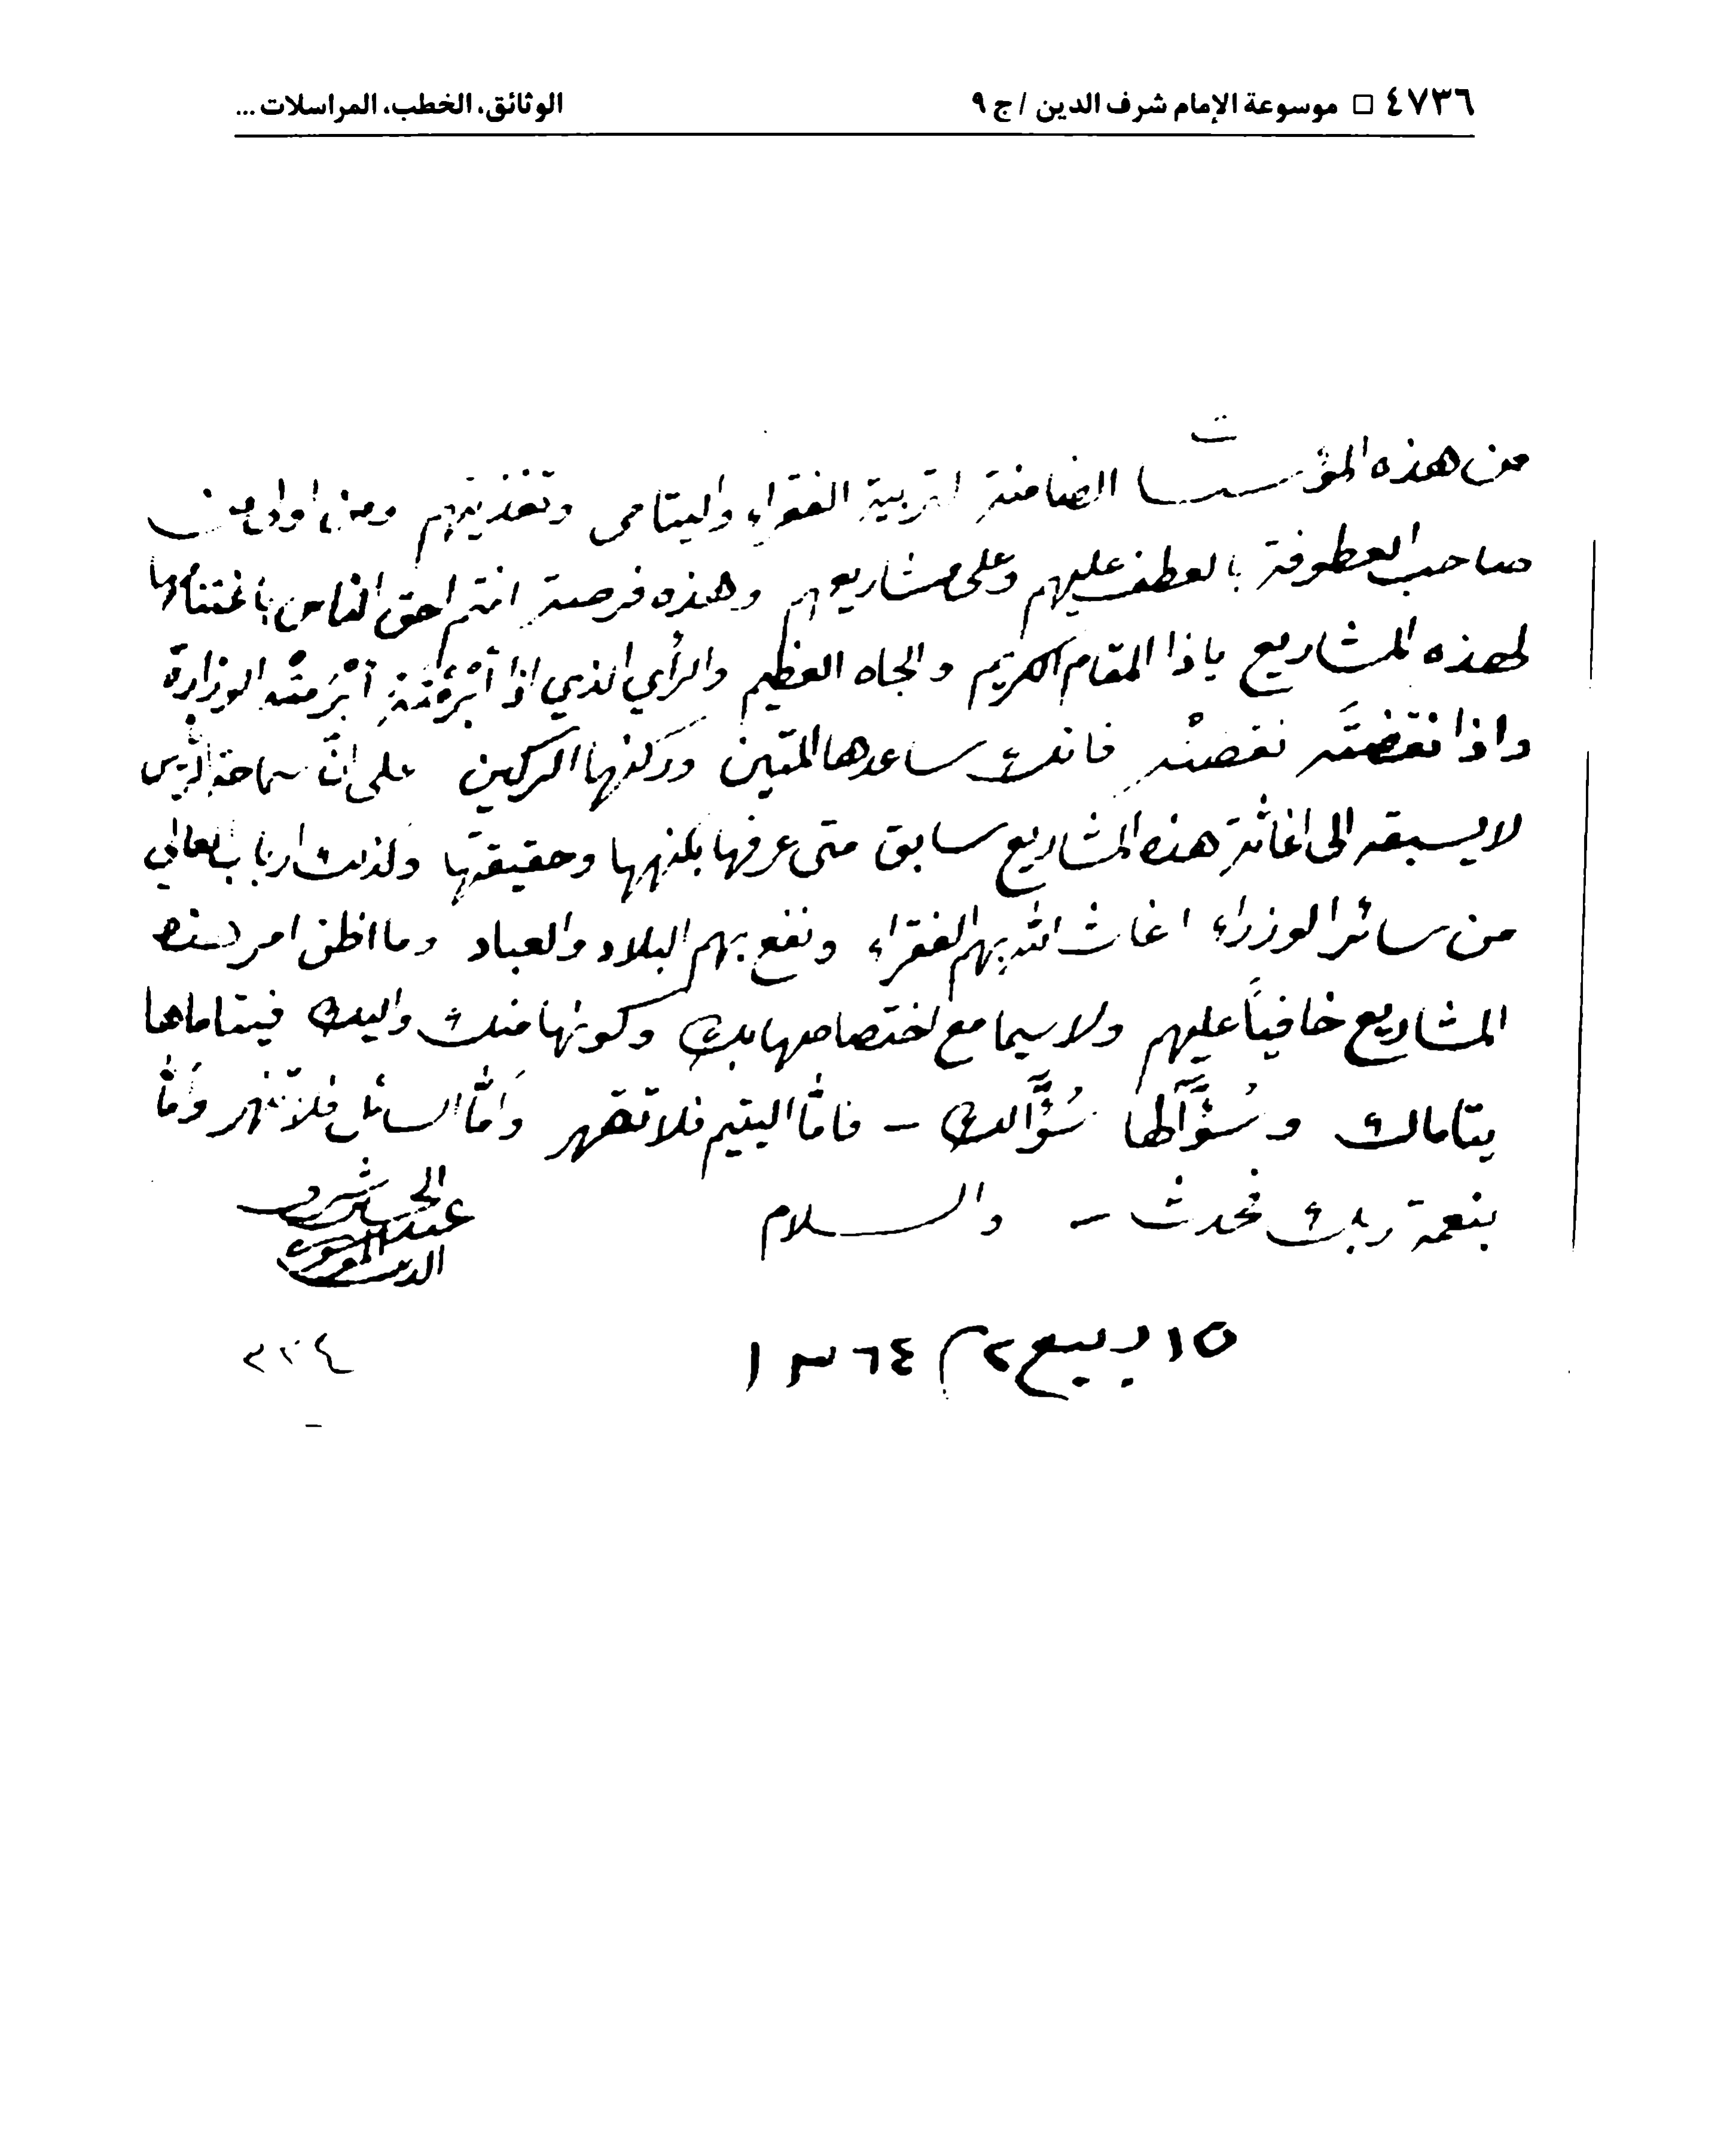 ٤٧٣٦ □ موسوعة الإمام شرف الدين / ج ٩ الوثائق، الخطب، المراسلات ...
من هذه المؤسسات الضامنة لتربية الفقراء واليتامى وتغذيتهم ومن اولى من
صاحب العطوفة بالعطف عليهم وعلى مشاريعهم وهذه فرصة انتم احق الناس باغتنامها
لهذه المشاريع ياذا المقام الكريم والجاه العظيم والرأي الذي اذا أبْرَمْتَهُ أبْرَمَتْه الوزارة
واذا نقضتَه نقضتْه فانك ساعدها المتين وركنها الركين على انَّ سماحة الرئيس
لا يسبقه الى اغاثة هذه المشاريع سابق متى عرفها بكنهها وحقيقتها وكذلك ارباب المعالي
من سائر الوزراء اغاث الله بهم الفقراء ونفع بهم البلاد والعباد وما اظن امر هذه
المشاريع خافياً عليهم ولا سيما مع اختصاصها بك وكونها منك واليك فيتاماها
يتاماك وسُؤَّالها سُؤَّالك – فامّا اليتيم فلا تقهر وَامّا السائل فلا تنهر وَامّا
بنعمة ربك فحدث – والسلام
عبد الحسين شرف
الدين الموسوي
١٥ ربيع ٢ ١٣٦٤